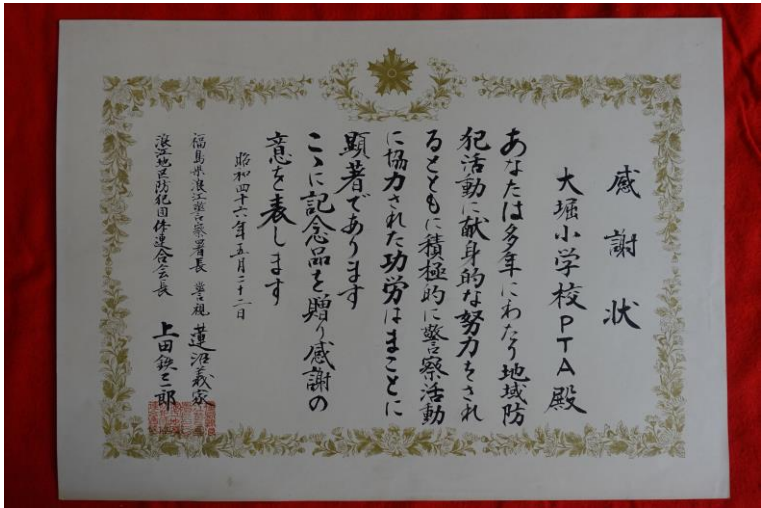 感謝状
大堀小学校PTA殿
あなたは多年にわたり地域防
犯活動に献身的な努力をされ
るとともに積極的に警察活動
に協力された功労はまことに
顕著であります
こゝに記念品を贈り感謝の
意を表します
昭和四十六年五月二十二日
福島県浪江警察署長 警視 蓮沼義家
浪江地区防犯団体連合会長 上田鉄三郎